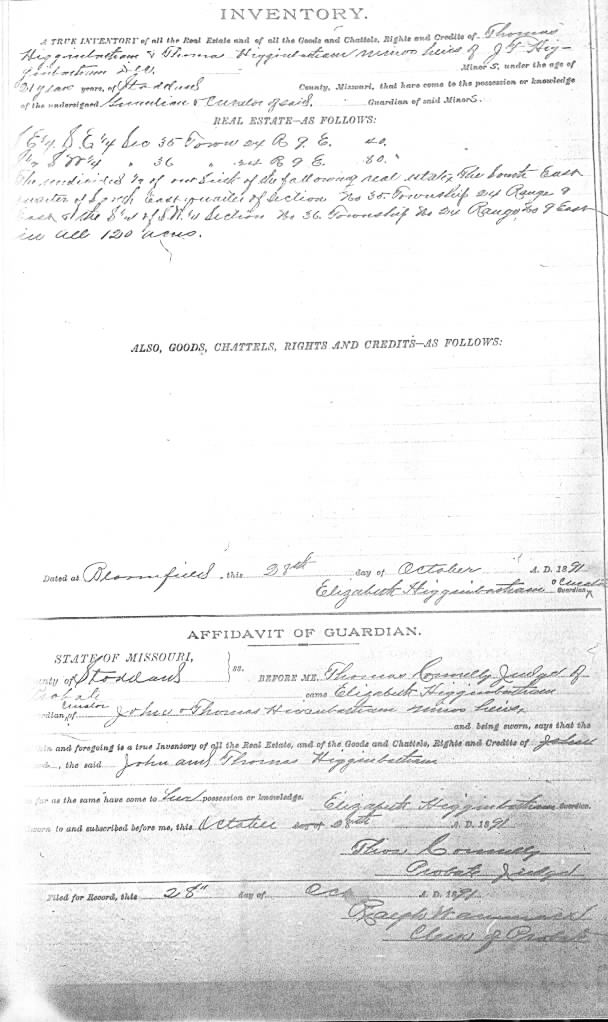 INVENTORY.
A TRUE INVENTORY of all the Real Estate and of all the Goods and Chattels, Rights and Credits of Thomas
Higginbotham & Thomas Higginbotham minor heirs of J T Hig-
ginbotham Minors, under the age of
21 years years, of Stoddard County, Missouri, that have come to the possession or knowledge
of the undersigned Guardian & Curator of said. Guardian of said Minors.
REAL ESTATE—AS FOLLOWS:
S E¼ Sec 35 Town 24 R 9 E. 40.
S W¼ " 36 " 24 R 9 E. 80."
The undivided of the following real estate, The South East
quarter of South East quarter of Section No 35. Township 24 Range 9
East & the of S.W.¼ Section No 36 Township No 24 Range No 9 East
in all 120 acres.
ALSO, GOODS, CHATTELS, RIGHTS AND CREDITS—AS FOLLOWS:
Dated at Bloomfield, this 28th day of October A. D. 1891
Elizabeth Higginbotham & Curator Guardian
AFFIDAVIT OF GUARDIAN.
STATE OF MISSOURI,
unty of Stoddard } ss. BEFORE ME, Thomas Connelly Judge of
Probate came Elizabeth Higginbotham
Curator
rdian of John & Thomas Higginbotham minor heirs,
and being sworn, says that the
hin and foregoing is a true Inventory of all the Real Estate, and of the Goods and Chattels, Rights and Credits of John
, the said John and Thomas Higginbotham
so far as the same have come to her possession or knowledge. Elizabeth Higginbotham Guardian.
worn to and subscribed before me, this October day of 28th A. D. 1891
Thos Connelly
Probate Judge
Filed for Record, this 28" day of Oct A. D. 1891
Ralph Wammack
Clerk of Probate